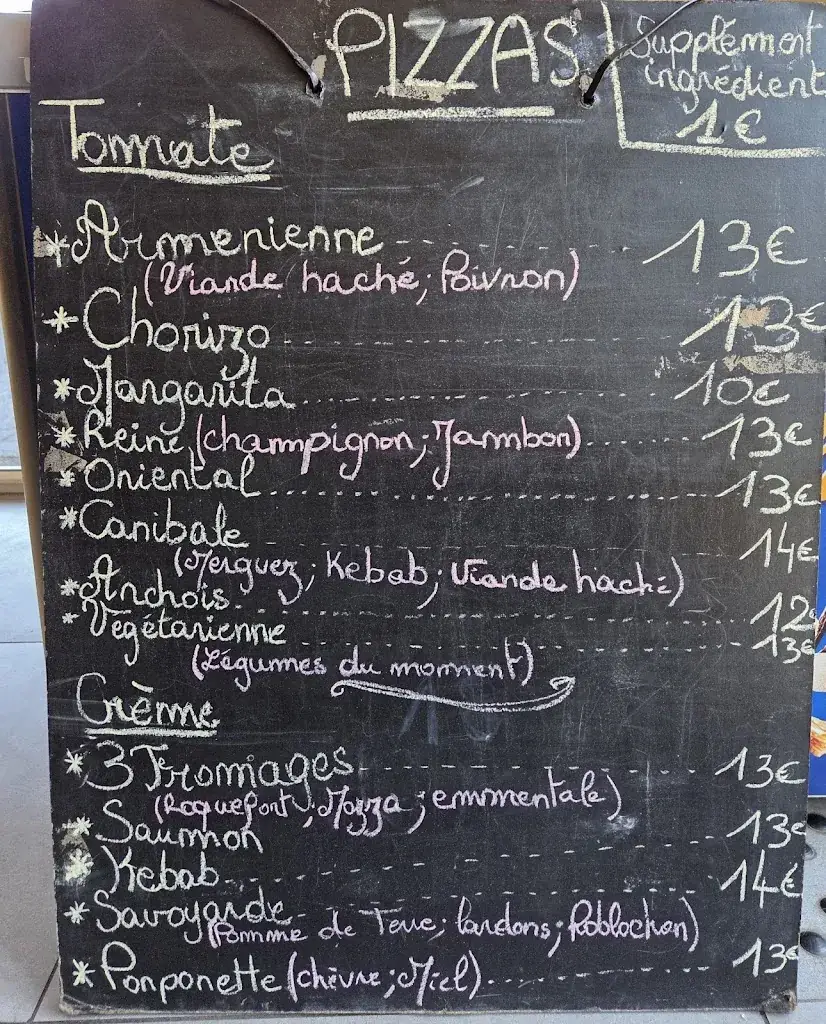 PIZZAS
Supplément
ingrédient
1€
Tomate
* Armenienne 13€
(Viande haché; Poivron)
* Chorizo 13€
* Margarita 10€
* Reine (champignon; Jambon) 13€
* Oriental 13€
* Canibale 14€
(Merguez; Kebab; Viande haché)
* Anchois 12€
* Végétarienne 13€
(Légumes du moment)
Crème
* 3 Fromages 13€
(Roquefort; Mozza; emmentale)
* Saumon 13€
* Kebab 14€
* Savoyarde
(Pomme de Terre; lardons; Roblochon)
* Ponponette (chèvre; Miel) 13€